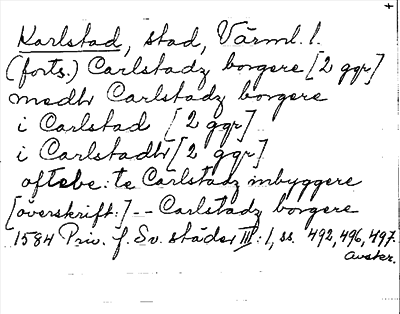 +
Karlstad, stad, Värml. l.
(forts.) Carlstadz borgere [2 ggr]
medh Carlstadz borgere
i Carlstad [2 ggr]
i Carlstadh [2 ggr]
oftebe: te Carlstadz inbyggere
[överskrift:] -- Carlstadz borgere
1584 Priv. f. Sv. städer III: 1, ss. 492, 496, 497.
Avskr.